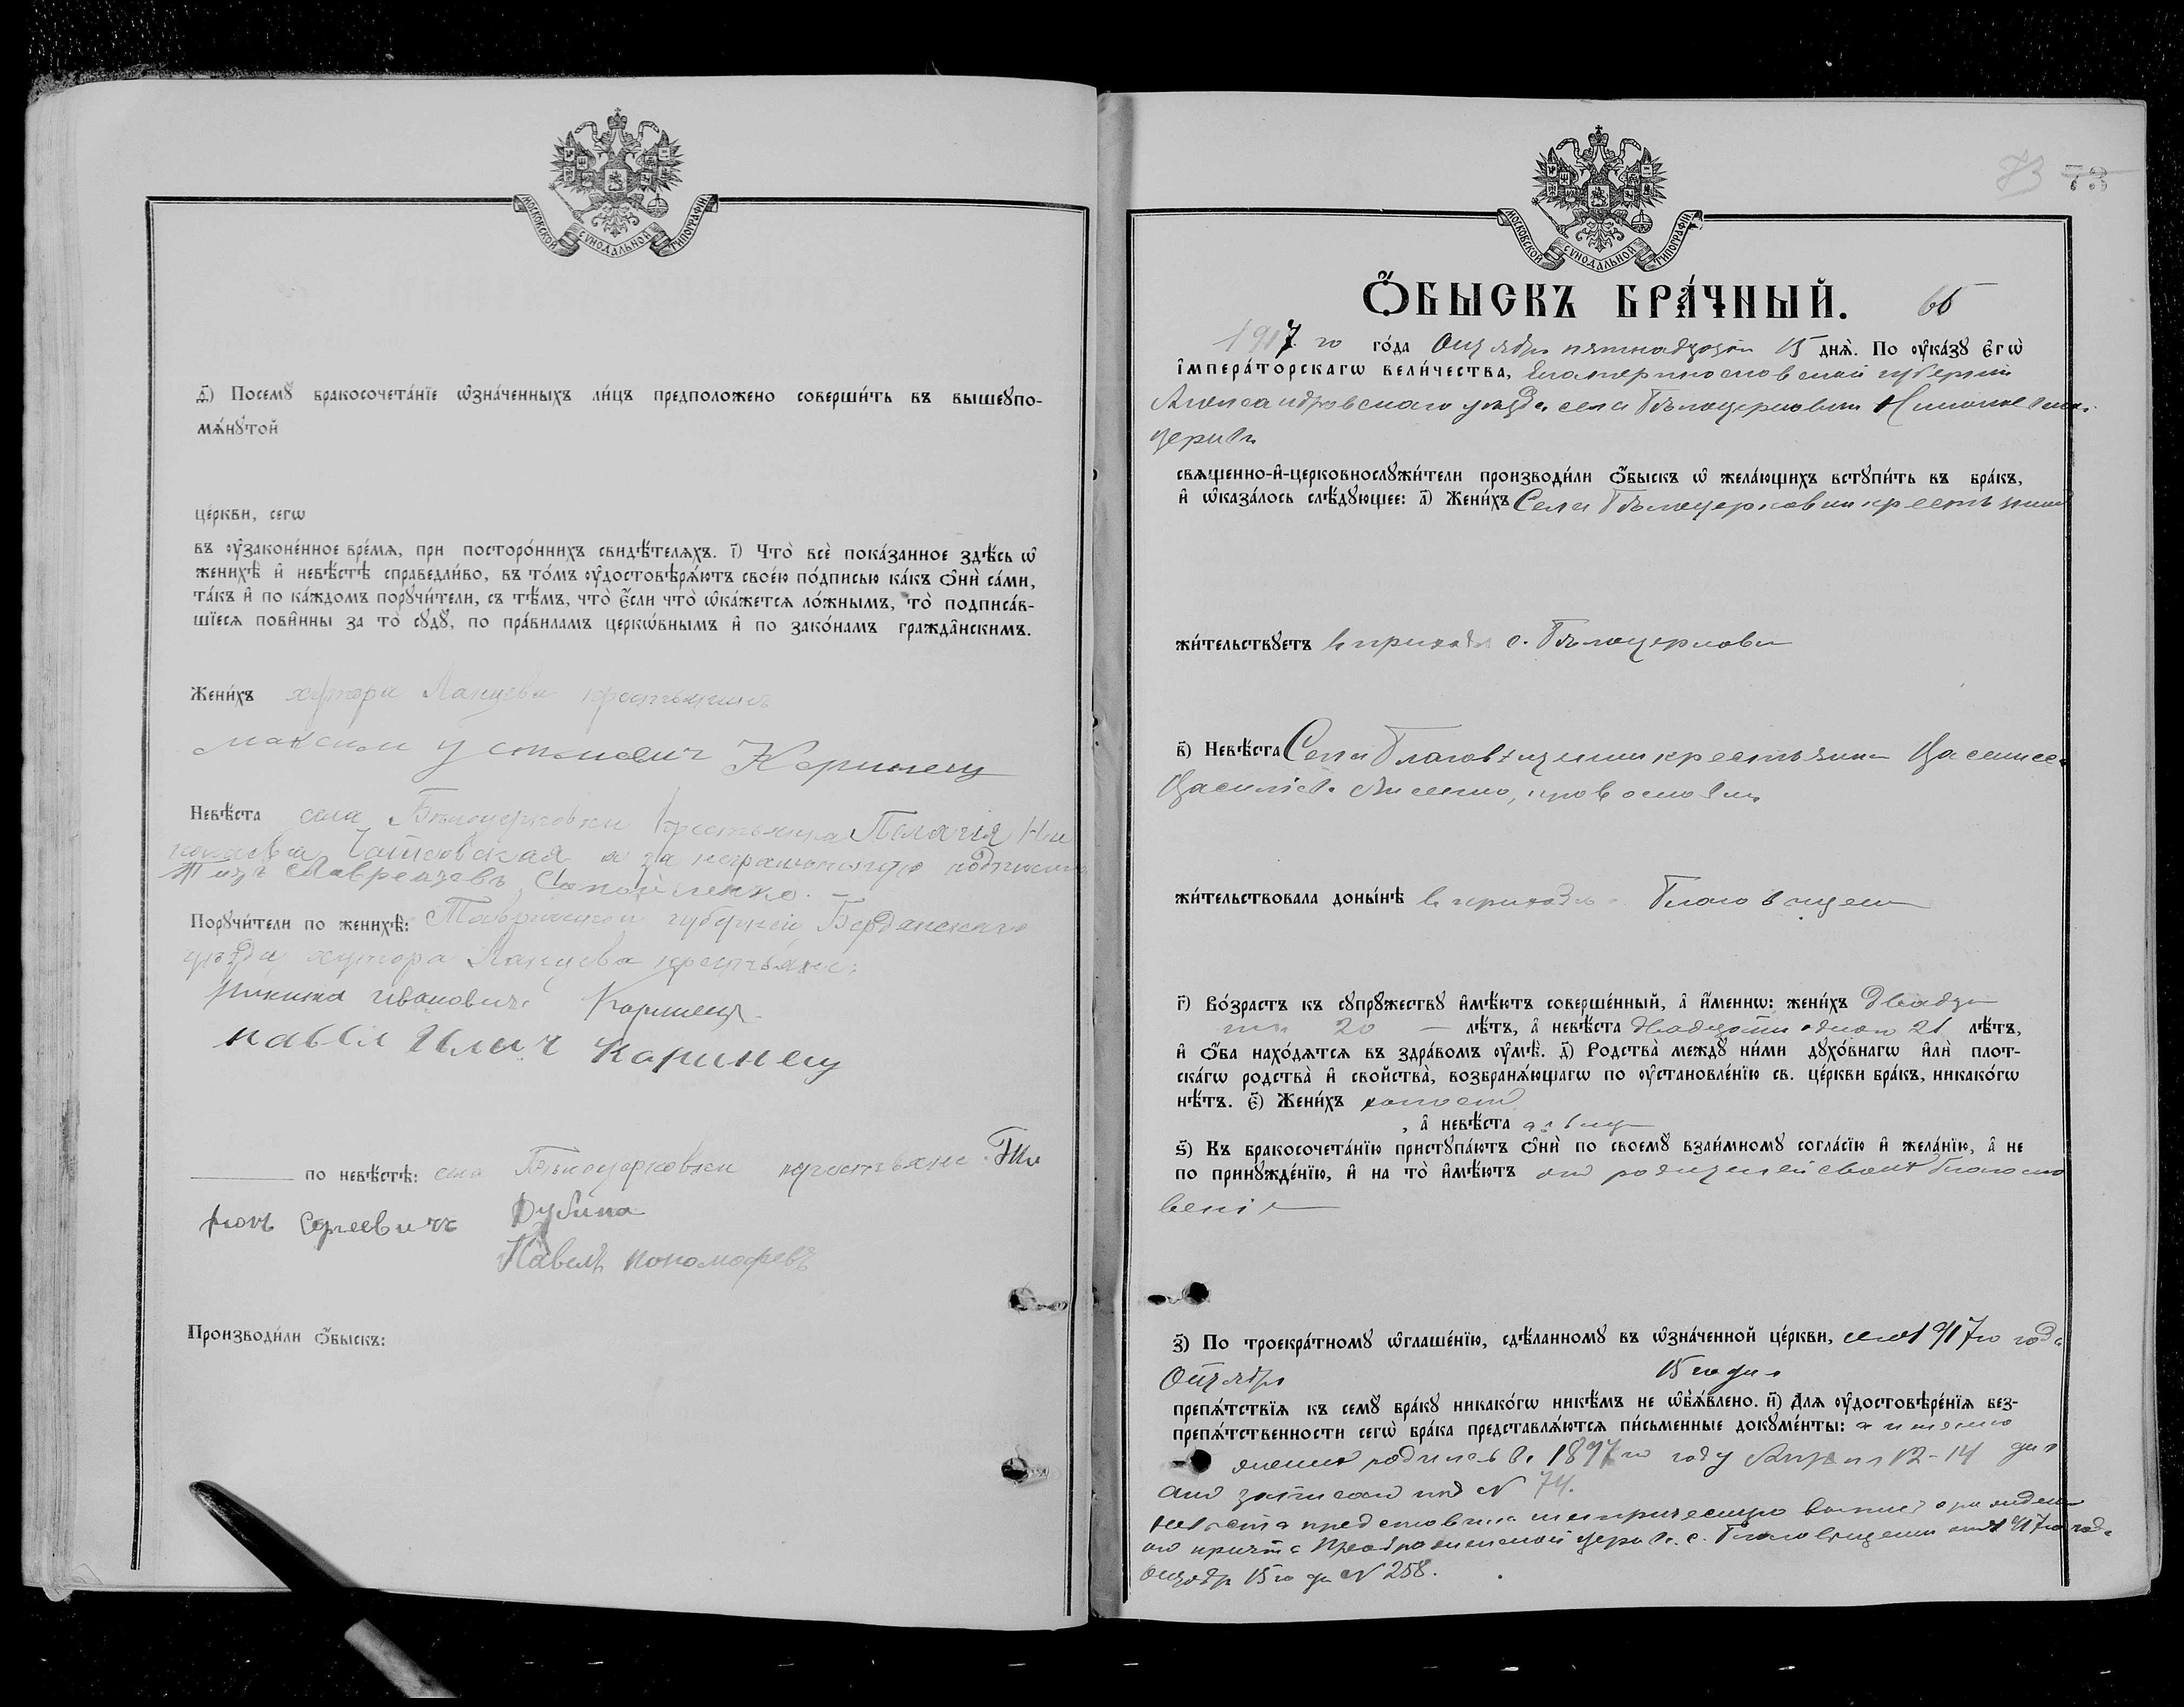 МОСКОВСКОЙ СѴНОДАЛЬНОЙ ТИПОГРАФІИ
д҃) Посемꙋ̀ бракосочета́нїе ѡ҆зна́ченныхъ ли́цъ предположено совершѝть въ вышеꙋпо-
мѧ́нꙋтой
це́ркви, сегѡ
въ ᲂу҆законе́нное вре́мѧ, при посторо́ннихъ свидѣ́телѧхъ. і҃) Что̀ всѐ пока́занное здѣ́сь ѡ҆
женихѣ̀ и҆ невѣ́стѣ справедли́во, въ то́мъ ᲂу҆достовѣрѧ́ютъ свое́ю по́дписью ка́къ ѻ҆нѝ са́ми,
та́къ и҆ по ка́ждомъ порꙋчи́тели, съ тѣ́мъ, что̀ є҆́сли что̀ ѡ҆ка́жетсѧ ло́жнымъ, то̀ подписа́в-
шїесѧ пови́нны за то̀ сꙋдꙋ̀, по пра́виламъ церко́внымъ и҆ по зако́намъ гражда́нскимъ.
Жени́хъ хутора
Максим Устинович
Невѣ́ста села Бѣлоцерковки крестьянка Пелагія Ни
а за неграмотную
Лаврентьевъ
Порꙋчи́тели по женихѣ̀: Таврической губерніи Бердянскаго
уѣзда хутора крестьяне:
Никита Ивановичъ
Павел Илич
по невѣ́стѣ: села Бѣлоцерковки крестьяне
Сергеевичъ Дубина
Павелъ Пономаревъ
Производи́ли ѻ҆́быскъ:
73 73
МОСКОВСКОЙ СѴНОДАЛЬНОЙ ТИПОГРАФІИ
Ѻ҆́БЫСКЪ БРА́ЧНЫЙ. 66
1917 го го́да Октября пятнадцатаго 15 днѧ̀. По ᲂу҆ка́зꙋ є҆гѡ̀
і҆мпера́торскагѡ вели́чества, Екатеринославской губерніи
Александровскаго уѣзда села Бѣлоцерковки Николаевской
церкви
свѧщенно-и҆-церковнослꙋжи́тели производи́ли ѻ҆́быскъ ѡ҆ жела́ющихъ встꙋпи́ть въ бра́къ,
и҆ ѡ҆каза́лось слѣ́дꙋющее: а҃) Жени́хъ Села Бѣлоцерковки крестьянинъ
жи́тельствꙋетъ въ приходѣ с. Бѣлоцерковки
в҃) Невѣ́ста Села Благовѣщенки крестьянка Василиса
Василіева Лисенко, православная
жи́тельствовала доны́нѣ въ приходѣ Благовѣщен
г҃) Во́зрастъ къ сꙋпрꙋ́жествꙋ и҆мѣ́ютъ соверше́нный, а҆ и҆́меннѡ: жени́хъ Двадца
ти 20 — лѣ́тъ, а҆ невѣ́ста двадцати одного 21 лѣ́тъ,
и҆ ѻ҆́ба нахо́дѧтсѧ въ здра́вомъ ᲂу҆мѣ̀. д҃) Родства̀ междꙋ̀ ни́ми дꙋхо́внагѡ и҆лѝ плот-
ска́гѡ родства̀ и҆ свойства̀, возбранѧ́ющагѡ по ᲂу҆становле́нїю св. це́ркви бра́къ, никако́гѡ
нѣ́тъ. є҃) Жени́хъ холостъ
, а҆ невѣ́ста дѣвица
ѕ҃) Къ бракосочета́нїю пристꙋпа́ютъ ѻ҆нѝ по своемꙋ̀ взаи́мномꙋ согла́сїю и҆ жела́нїю, а҆ не
по принꙋжде́нїю, и҆ на то̀ и҆мѣ́ютъ отъ родителей своихъ благосло
веніе
з҃) По троекра́тномꙋ ѡ҆глаше́нїю, сдѣ́ланномꙋ въ ѡ҆зна́ченной це́ркви, сего 1917го года
Октября 15го дня
препѧ́тствїѧ къ семꙋ̀ бра́кꙋ никако́гѡ никѣ́мъ не ѡ҆б̾ѧ́влено. и҃) Длѧ ᲂу҆достовѣре́нїѧ без-
препѧ́тственности сегѡ̀ бра́ка представлѧ́ютсѧ пи́сьменные докꙋме́нты: а именно
женихъ родился въ 1897го году Апрѣля 12-14 дня
актъ записанъ подъ № 74.
невѣста представила метрическую выпись о рожденіи
отъ причта Преображенской церкви с. Благовѣщенки отъ 1917го года
Октября 15го дня № 258.